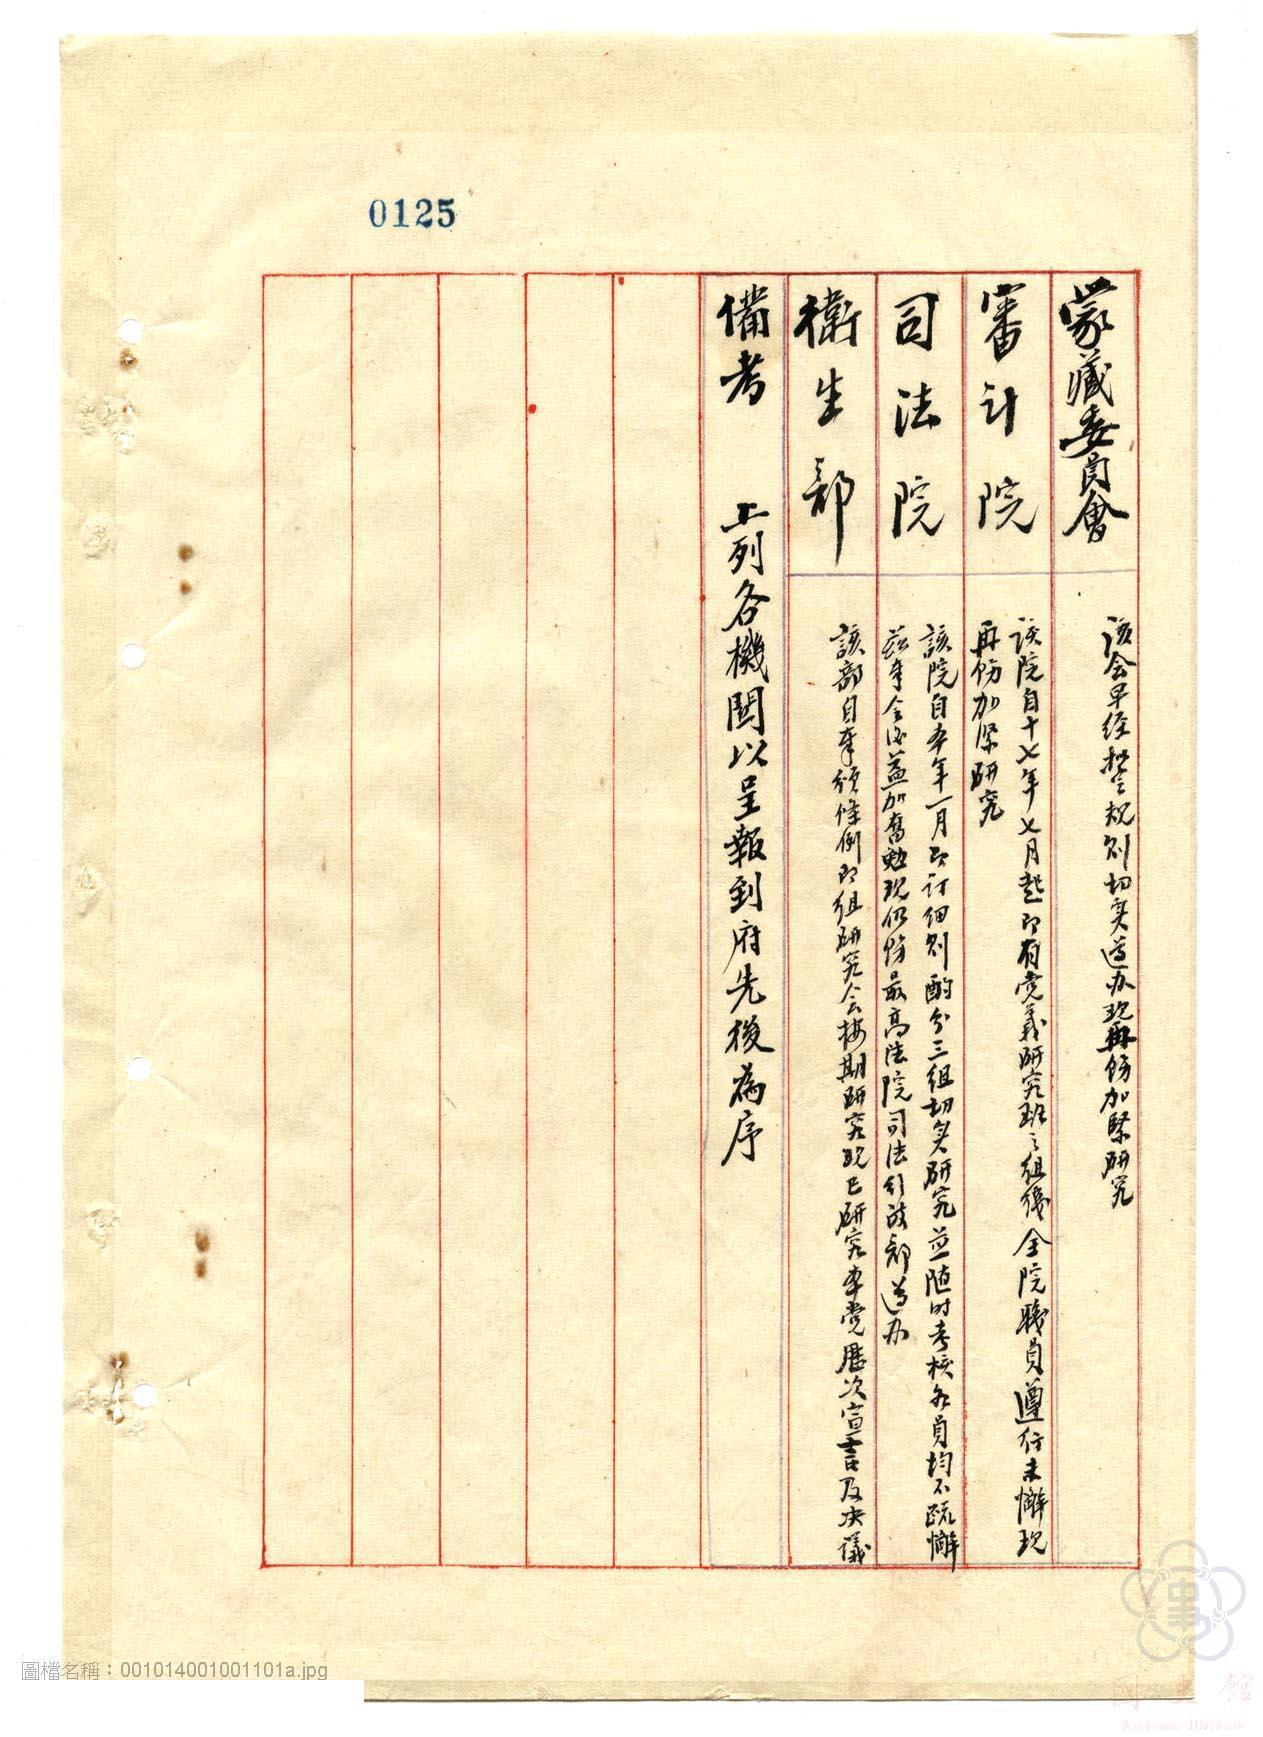 0125
蒙藏委員會
該会早経擬定規則切实遵办現再飭加緊研究
審計院
該院自十七年七月起即有党義研究班之組織全院職員遵行未懈現
再飭加緊研究
司法院
該院自本年一月即訂細則酌分三組切实研究並随时考核各員均不疏懈
茲奉令後益加奮勉現仍飭最高法院司法行政部遵办
衛生部
該部自奉頒條例即組研究会按期研究現已研究本党歷次宣言及決議
備考
上列各機関以呈報到府先後為序
圖檔名稱：001014001001101a.jpg
國史館
Academia Historica